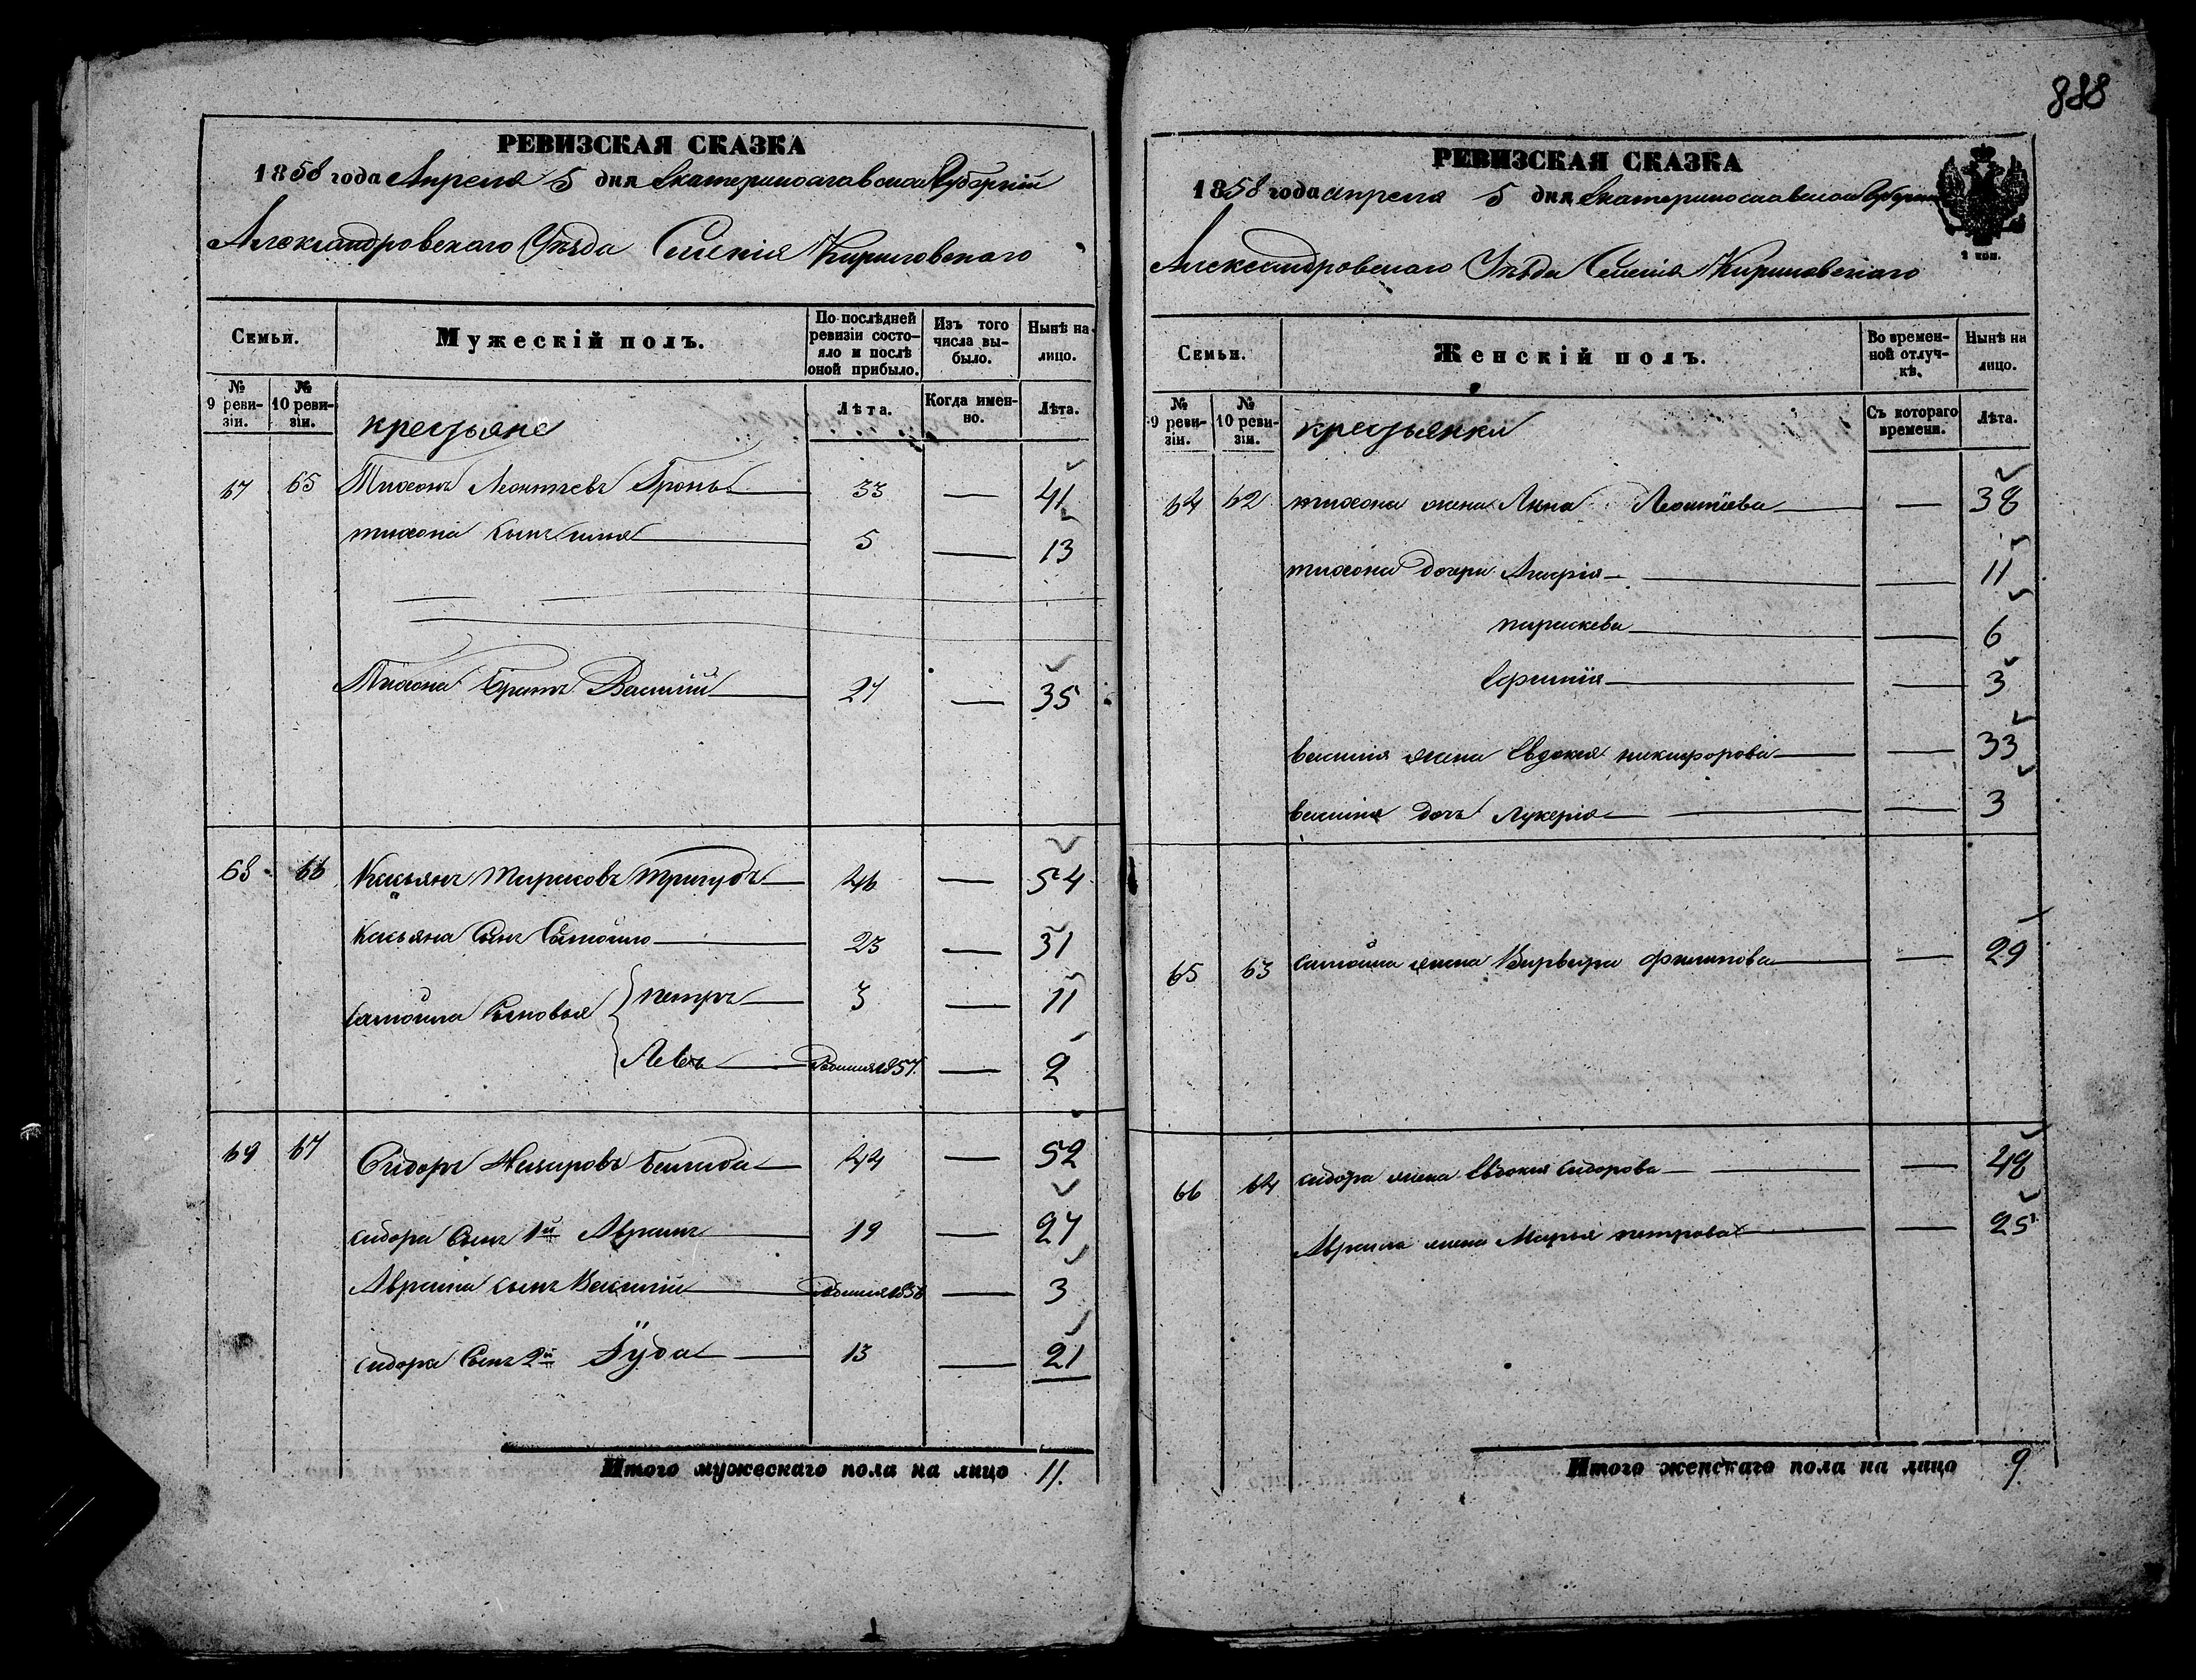 888
РЕВИЗСКАЯ СКАЗКА
1858 года Апреля 5 дня Екатеринославской Губерніи
Александровскаго Уѣзда Селенія Кириловскаго
Семьи.
Мужескій полъ.
По послѣдней ревизіи состояло и послѣ оной прибыло.
Изъ того числа выбыло.
Нынѣ на лицо.
№ 9 ревизіи.
№ 10 ревизіи.
крестьяне
Лѣта.
Когда именно.
Лѣта.
67 65 Тихонъ Леонтьевъ 33 — 41
тихона сынъ 5 — 13
Тихона Братъ Василій 27 — 35
68 66 Касьянъ Тарасовъ Тригубъ 46 — 54
Касьяна Сынъ Самойло 23 — 31
Самойла Сыновья петръ 3 — 11
Левъ 1857 — 2
69 67 Сидоръ Назаровъ 44 — 52
сидора Сынъ 1й Аврамъ 19 — 27
Аврама сынъ Василій — 3
сидора Сынъ 2й Іуда 13 — 21
Итого мужескаго пола на лицо 11.
РЕВИЗСКАЯ СКАЗКА
1858 года апреля 5 дня Екатеринославской Губерніи
Александровскаго Уѣзда Селенія Кириловскаго
2 коп.
Семьи.
Женскій полъ.
Во временной отлучкѣ.
Нынѣ на лицо.
№ 9 ревизіи.
№ 10 ревизіи.
крестьянки
Съ котораго времени.
Лѣта.
64 62 тихона жена Анна — 38
тихона дочери — 11
параскева — 6
Ефимія — 3
василія жена Евдокия никифорова — 33
василія дочь Лукерія — 3
65 63 самойла жена Варвара филипова — 29
66 64 сидора жена Евдокия сидорова — 48
Аврама жена Марья петрова — 25
Итого женскаго пола на лицо 9